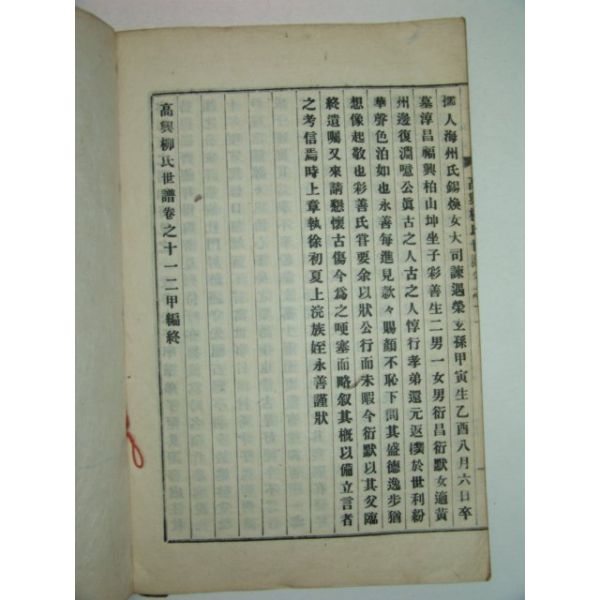 孺人海州氏錫煥女大司諫遇榮玄孫甲寅生乙酉八月六日卒
墓淳昌福興柏山坤坐子彩善生二男一女男衍昌衍默女適黃
州邊復淵噫公眞古之人古之人惇行孝弟還元返璞於世利紛
華聲色泊如也永善每進見款々賜顔不恥下問其盛德逸步猶
想像起敬也彩善氏嘗要余以狀公行而未暇今衍默以其父臨
終遺囑又來請懇懷古傷今爲之哽塞而略叙其槪以備立言者
之考信焉時上章執徐初夏上浣族姪永善謹狀
高興柳氏世譜卷之十一二甲編終